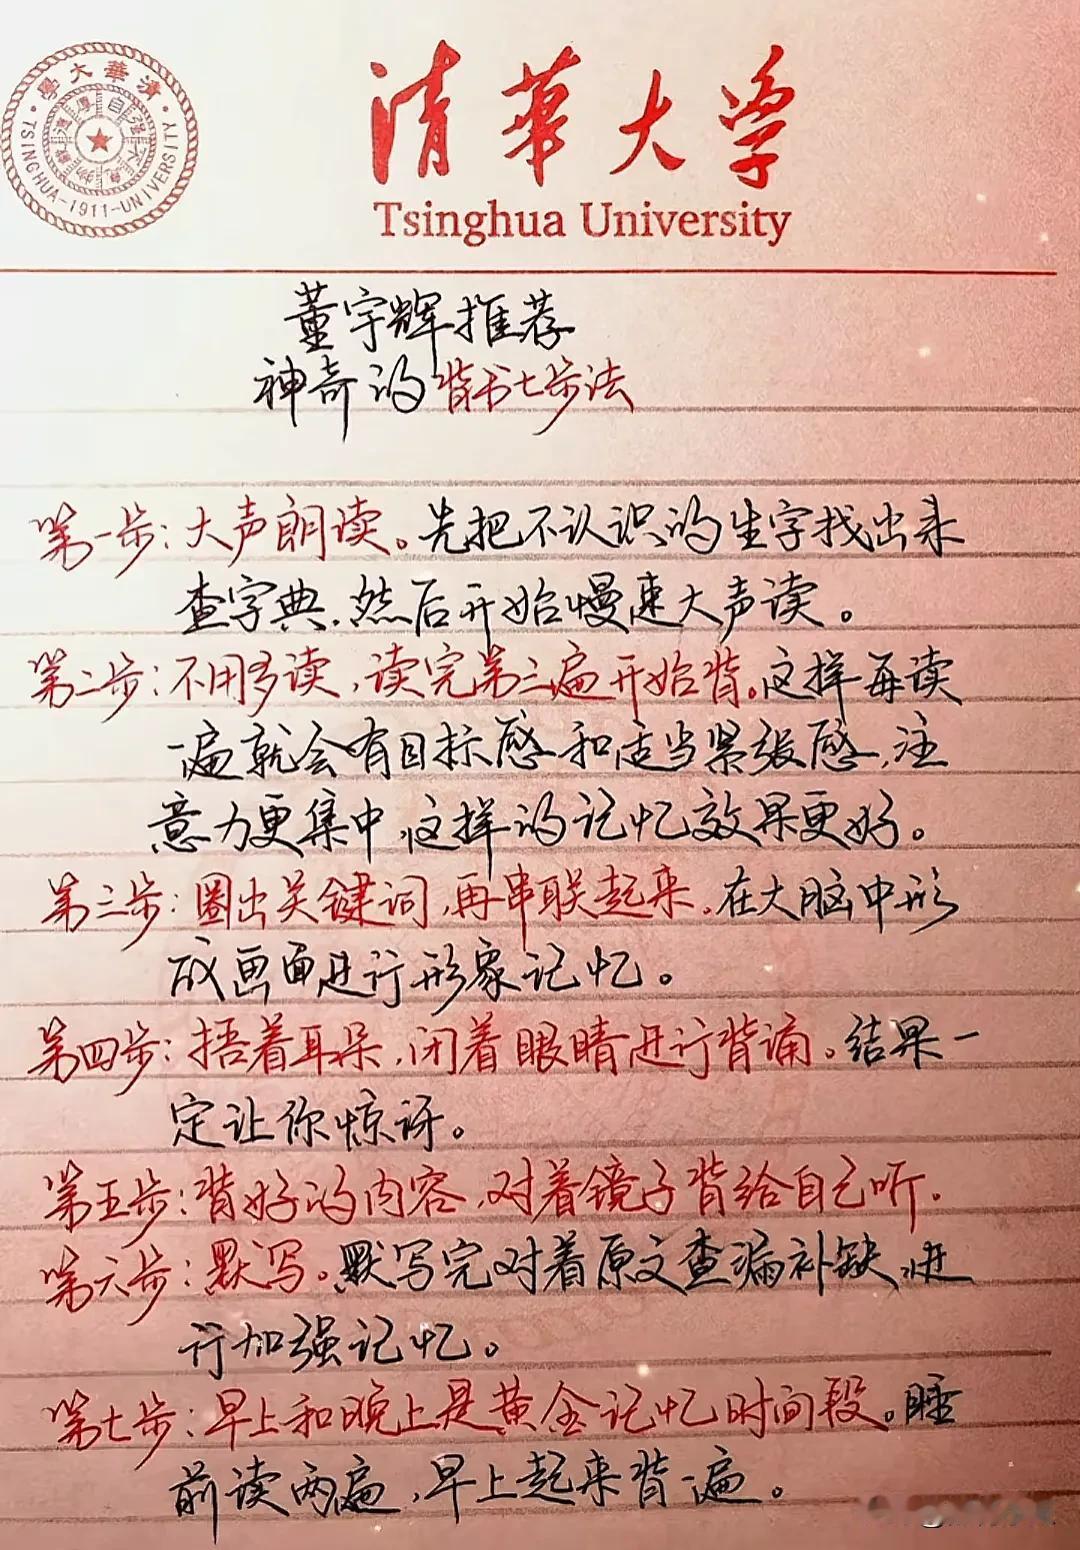 清華大學
·TSINGHUA-1911-UNIVERSITY·
自强不息
厚德載物
清華大学
Tsinghua University
董宇辉推荐
神奇的背书七步法
第一步:大声朗读。先把不认识的生字找出来
查字典.然后开始慢速大声读。
第二步:不用多读,读完第三遍开始背。这样每读
一遍就会有目标感和适当紧张感,注
意力更集中,这样的记忆效果更好。
第三步:圈出关键词,再串联起来.在大脑中形
成画面进行形象记忆。
第四步:捂着耳朵,闭着眼睛进行背诵。结果一
定让你惊讶。
第五步:背好的内容,对着镜子背给自己听.
第六步:默写。默写完对着原文查漏补缺,进
行加强记忆。
第七步:早上和晚上是黄金记忆时间段。睡
前读两遍,早上起来背一遍。